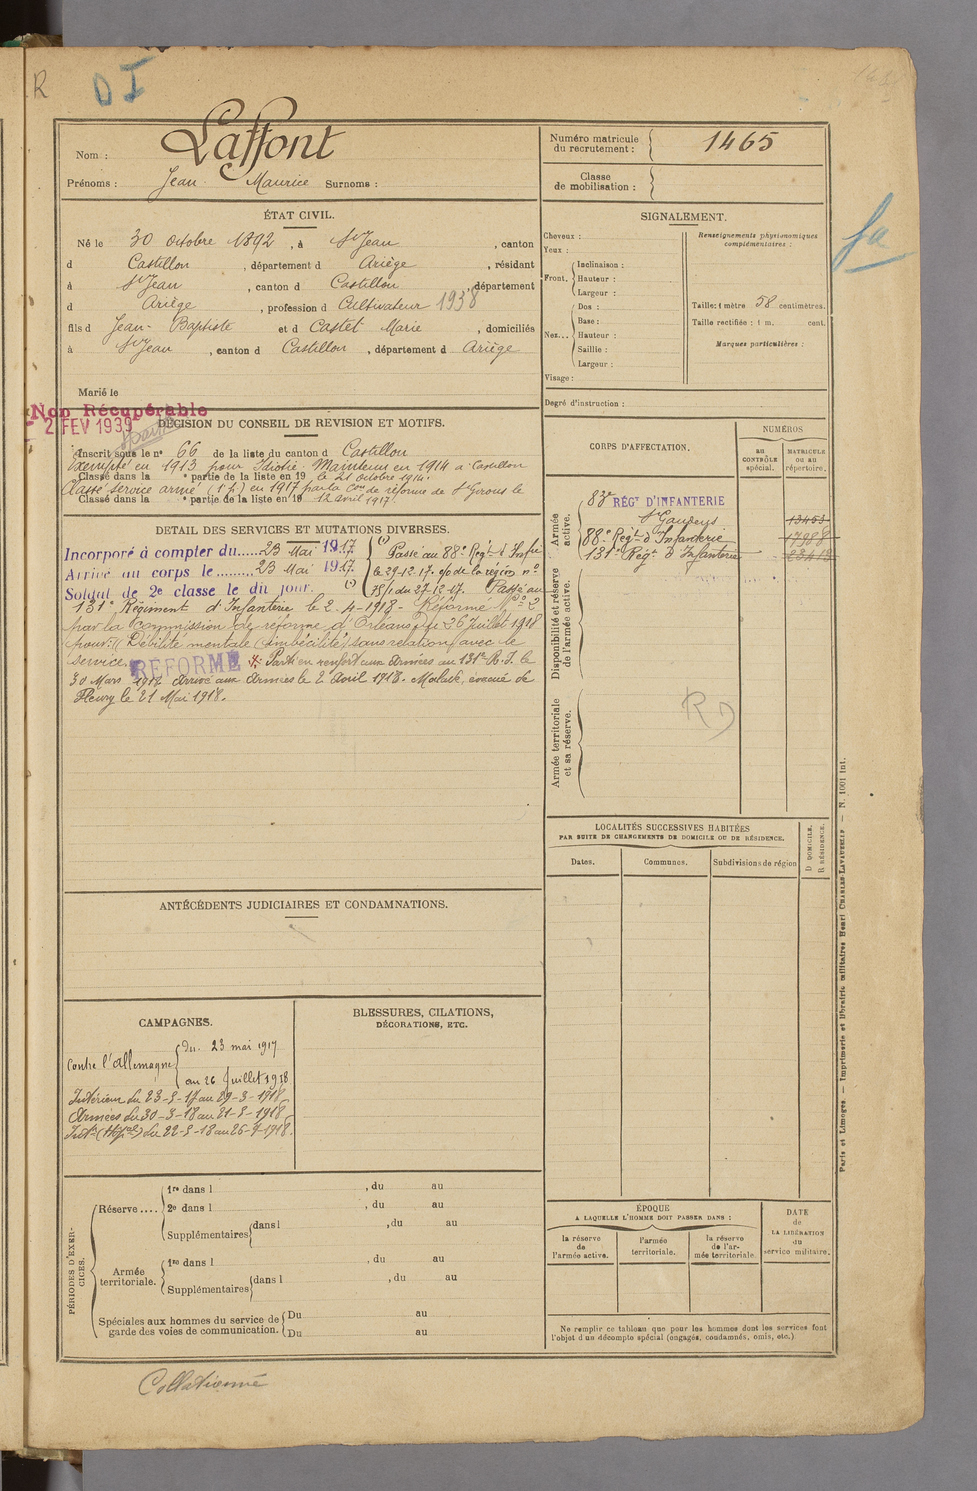 R
D I
Nom : Laffont
Prénoms : Jean Maurice Surnoms :
Numéro matricule du recrutement : 1465
Classe de mobilisation :
ÉTAT CIVIL.
Né le 30 octobre 1892, à St Jean, canton
d Castillon, département d Ariège, résidant
à St Jean, canton d Castillon, département
d Ariège, profession d Cultivateur 1938
fils d Jean-Baptiste et d Castet Marie, domiciliés
à St Jean, canton d Castillon, département d Ariège
Marié le
Non Récupérable
2 FEV 1939
SIGNALEMENT.
Cheveux :
Yeux :
Front. Inclinaison :
Hauteur :
Largeur :
Nez... Dos :
Base :
Hauteur :
Saillie :
Largeur :
Visage :
Renseignements physionomiques complémentaires :
Taille : 1 mètre 58 centimètres.
Taille rectifiée : 1 m. cent.
Marques particulières :
Degré d'instruction :
fa
DÉCISION DU CONSEIL DE REVISION ET MOTIFS.
Inscrit sous le n° 66 de la liste du canton d Castillon
Exempté en 1913 pour Idiotie. Maintenu en 1914 a Castillon
Classé dans la e partie de la liste en 19 le 21 octobre 1914.
Classé service armé (1 p) en 1917 par la Con de réforme de St Girons le
Classé dans la e partie de la liste en 19 12 avril 1917
DETAIL DES SERVICES ET MUTATIONS DIVERSES.
Incorporé à compter du.....23 Mai 1917
Arrivé au corps le.........23 Mai 1917.
Soldat de 2e classe le dit jour. (1)
(1) Passé au 88e Régt d'Infie
le 29-12-17. de la région no
du 27-12-17. Passé au
131e Régiment d'Infanterie le 2-4-1918- Réformé No 2
par la Commission de réforme d'Orléans du 26 Juillet 1918
pour: "Débilité mentale (imbécilité) sans relation avec le
service. RÉFORMÉ Parti en renfort aux Armées au 131e R.I. le
30 Mars 1917 Arrivé aux Armées le 2 Avril 1918. Malade, évacué de
Fleury le 21 Mai 1918.
CORPS D'AFFECTATION.
NUMÉROS
AU CONTRÔLE spécial.
MATRICULE OU AU répertoire.
Armée active.
83e RÉGT D'INFANTERIE
St Gaudens 13453
88e Régt d'Infanterie 17988
131e Régt d'Infanterie 23413
Disponibilité et réserve de l'armée active.
Armée territoriale et sa réserve.
R D
LOCALITÉS SUCCESSIVES HABITÉES
PAR SUITE DE CHANGEMENTS DE DOMICILE OU DE RÉSIDENCE.
Dates.
Communes.
Subdivisions de région
D DOMICILE.
R RÉSIDENCE.
ANTÉCÉDENTS JUDICIAIRES ET CONDAMNATIONS.
CAMPAGNES.
Contre l'Allemagne du 23 mai 1917
au 26 Juillet 1918
Intérieur du 23-5-17 au 29-3-1918
Armées du 30-3-18 au 21-5-1918
Intr (Hopal) du 22-5-18 au 26-7-1918.
BLESSURES, CILATIONS,
DÉCORATIONS, ETC.
PÉRIODES D'EXERCICES.
Réserve .... 1re dans l , du au
2e dans l , du au
Supplémentaires dans l , du au
Armée territoriale. 1re dans l , du au
Supplémentaires dans l , du au
Spéciales aux hommes du service de Du au
garde des voies de communication. Du au
ÉPOQUE
A LAQUELLE L'HOMME DOIT PASSER DANS :
la réserve de l'armée active.
l'armée territoriale.
la réserve de l'armée territoriale.
DATE de LA LIBÉRATION du service militaire.
Ne remplir ce tableau que pour les hommes dont les services font
l'objet d'un décompte spécial (engagés, condamnés, omis, etc.)
Paris et Limoges. — Imprimerie et librairie militaires Henri CHARLES-LAVAUZELLE — N. 1001 int.
Collationné